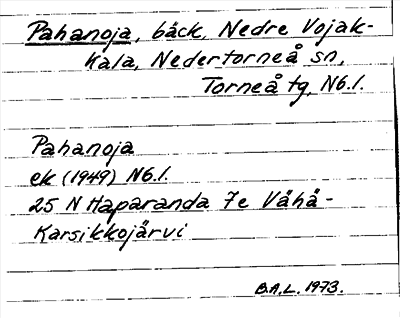 Pahanoja, bäck, Nedre Vojak-
kala, Nedertorneå sn,
Torneå tg, Nb.l.
Pahanoja
ek (1949) Nb.l.
25 N Haparanda 7e Vähä-
Karsikkojärvi
B.A.L. 1973.